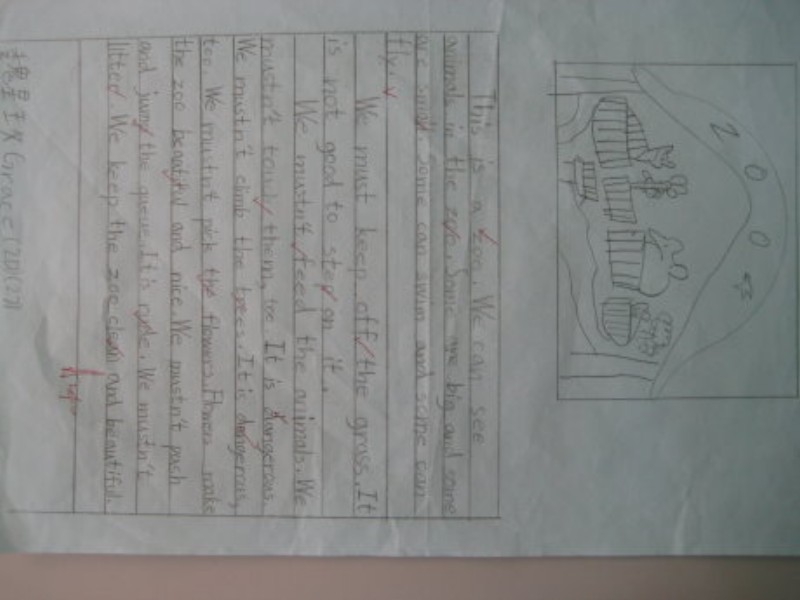 ZOO
This is a zoo. We can see
animals in the zoo. Some are big and some
are small. Some can swim and some can
fly.
We must keep off the grass. It
is not good to step on it.
We mustn't feed the animals. We
mustn't touch them, too. It is dangerous.
We mustn't climb the trees. It is dangerous,
too. We mustn't pick the flowers. Flowers make
the zoo beautiful and nice. We mustn't push
and jump the queue. It is rude. We mustn't
litter. We keep the zoo clean and beautiful.
Grace